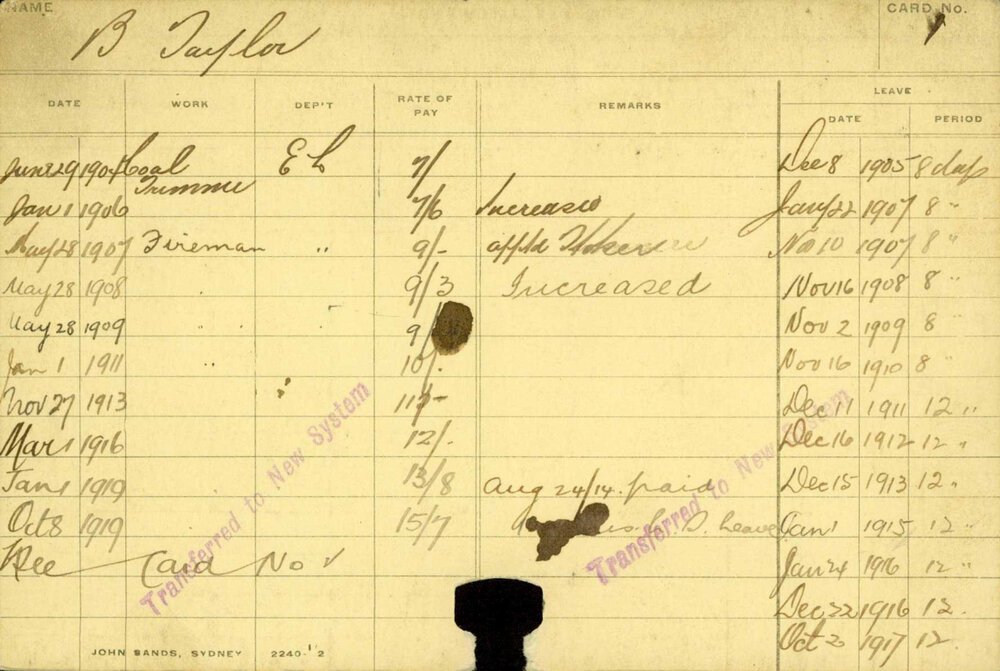 NAME
B Taylor
CARD No.
1
DATE WORK DEP'T RATE OF PAY REMARKS LEAVE
DATE PERIOD
June 29 1904 Coal E L 7/ Dec 8 1905 8 days
Trimmer
Jan 1 1906 7/6 Increased Jany 22 1907 8 "
May 28 1907 Fireman " 9/- app'td Nov 10 1907 8 "
May 28 1908 9/3 Increased Nov 16 1908 8 "
May 28 1909 " " 9/ Nov 2 1909 8 "
Jan 1 1911 " " 10/. Nov 16 1910 8
Nov 27 1913 " 11/- Dec 11 1911 12 "
Mar 1 1916 12/. Dec 16 1912 12 "
Jan 1 1919 13/8 Aug 24/14 paid Dec 15 1913 12 "
Oct 8 1919 15/7 Leave Jan 1 1915 12 "
See Card No 1 Jan 24 1916 12 "
Dec 22 1916 12.
Oct 2 1917 12
Transferred to New System
Transferred to New System
JOHN SANDS, SYDNEY 2240-1/2